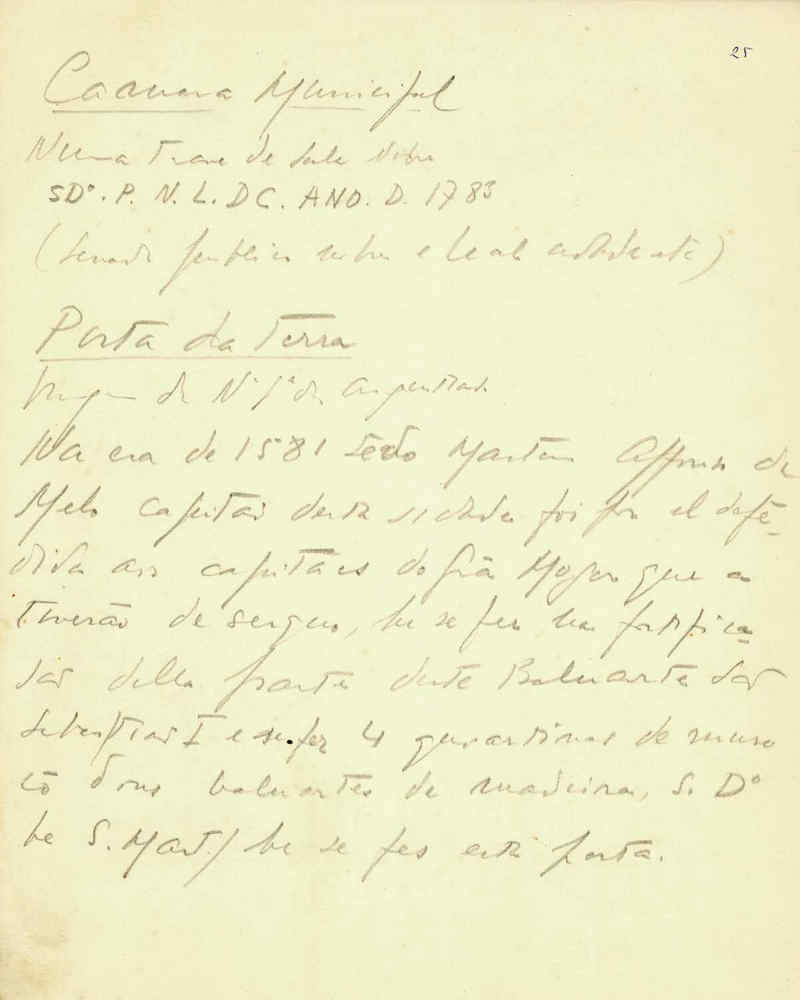 25
Camara Municipal
Numa trave da Sala Nobre
SDº. P. N. L. D C. ANO. D. 1783
(Senado publico nobre e leal
Porta da Terra
Na era de 1581 sẽdo Martim Affonso de
Melo capitão desta sidade foi por el defẽ-
dida aos capitães do grã Mogor que a
tiverão de serquo, he se fez ha fortifica-
são della parte deste Baluarte São
Sebastião I e se fez 4 guarardinas de muro
cõ dous baluartes de madeira, S. Dº
he S. Mart/ he se fes esta porta.